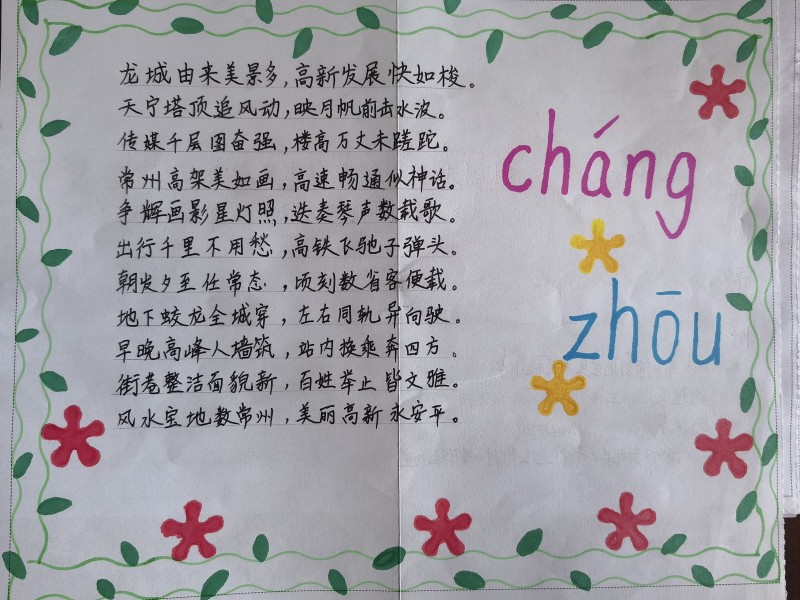 龙城由来美景多，高新发展快如梭。
天宁塔顶追风动，映月帆前击水波。
传媒千层图奋强，楼高万丈未蹉跎。
常州高架美如画，高速畅通似神话。
争辉画影星灯照，迭奏琴声数载歌。
出行千里不用愁，高铁飞驰子弹头。
朝发夕至任常态，顷刻数省客便载。
地下蛟龙全城穿，左右同轨异向驶。
早晚高峰人墙筑，站内换乘奔四方。
街巷整洁面貌新，百姓举止皆文雅。
风水宝地数常州，美丽高新永安平。
cháng
zhōu